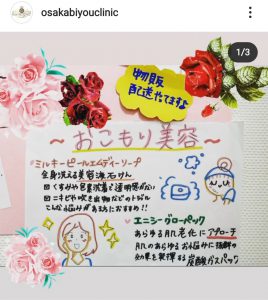 osakabiyouclinic
1/3
物販
配送やってますよ
～おこもり美容～
ミルキーピールエムディーソープ
全身洗える美容液石けん
くすみや色素沈着
ニキビや吹き出物などのトラブル
こんなお悩みがある方におすすめ!!
エニシーグローパック
あらゆる肌老化にアプローチ
肌のあらゆるお悩みに抜群の
効果を発揮する炭酸ガスパック